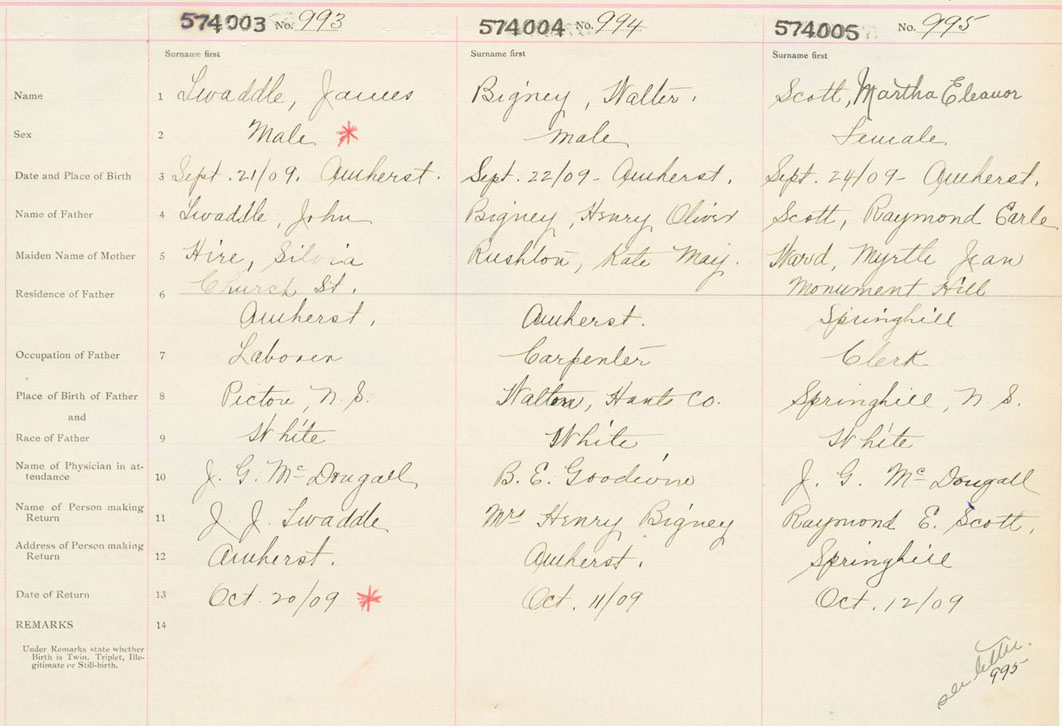 574003 No. 993 574004 No. 994 574005 No. 995
Surname first Surname first Surname first
Name 1 Swaddle, James Bigney, Walter. Scott, Martha Eleanor
Sex 2 Male * Male Female
Date and Place of Birth 3 Sept. 21/09. Amherst. Sept. 22/09 - Amherst. Sept. 24/09 - Amherst.
Name of Father 4 Swaddle, John Bigney, Henry Oliver Scott, Raymond Earle
Maiden Name of Mother 5 Hire, Silvia Rushton, Kate May. Ward, Myrtle Jean
Church St. Monument Hill
Residence of Father 6 Amherst. Amherst. Springhill
Occupation of Father 7 Laborer Carpenter Clerk
Place of Birth of Father 8 Pictou, N.S. Walton, Hants Co. Springhill, N.S.
and
Race of Father 9 White White White
Name of Physician in at-
tendance 10 J. G. McDougall B. E. Goodwin J. G. McDougall
Name of Person making
Return 11 J. J. Swaddle Mrs Henry Bigney Raymond E. Scott.
Address of Person making
Return 12 Amherst. Amherst. Springhill
Date of Return 13 Oct. 20/09 * Oct. 11/09 Oct. 12/09
REMARKS 14
Under Remarks state whether
Birth is Twin, Triplet, Ille-
gitimate or Still-birth.
see letter.
995